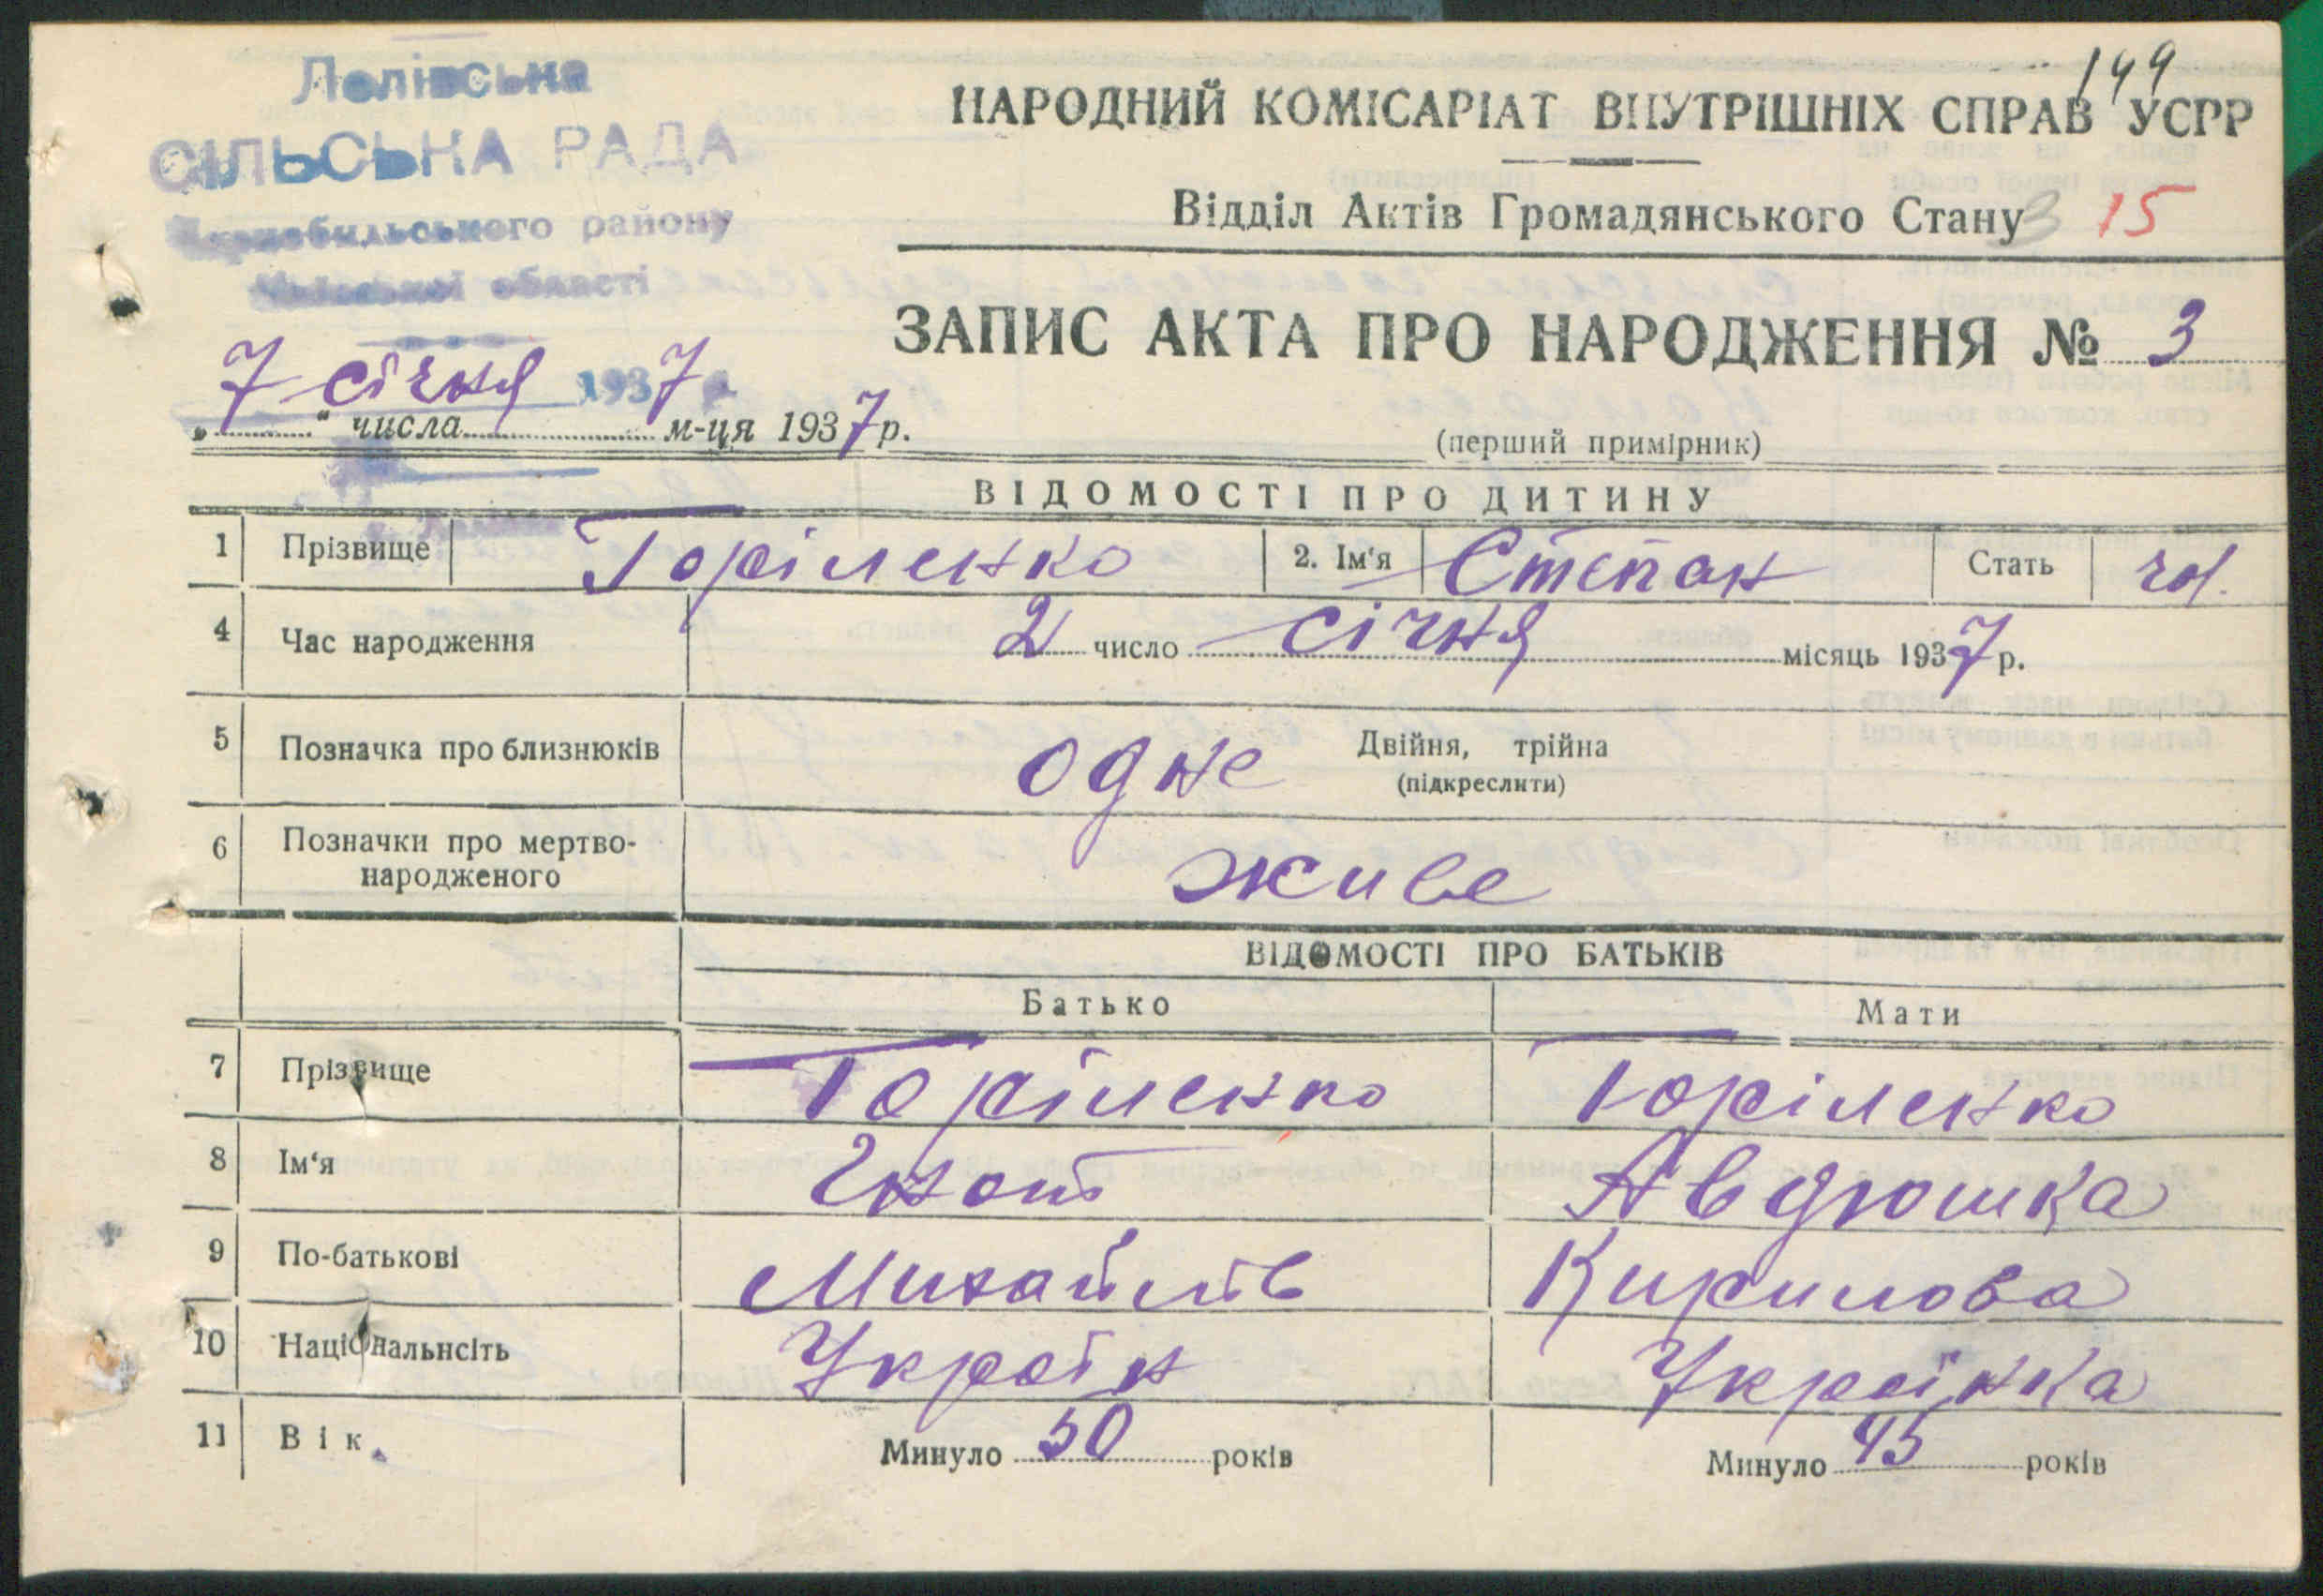 149
Лелівська
СІЛЬСЬКА РАДА
Чорнобильського району
Київської області
НАРОДНИЙ КОМІСАРІАТ ВНУТРІШНІХ СПРАВ УСРР
Відділ Актів Громадянського Стану 3 15
ЗАПИС АКТА ПРО НАРОДЖЕННЯ № 3
7 січня 1937
„ “ числа м-ця 1937 р.
(перший примірник)
ВІДОМОСТІ ПРО ДИТИНУ
1 Прізвище Горіленко 2. Ім‘я Степан Стать чол.
4 Час народження 2 число січня місяць 1937 р.
5 Позначка про близнюків одне Двійня, трійна
(підкреслити)
6 Позначки про мертво-
народженого живе
ВІДОМОСТІ ПРО БАТЬКІВ
Батько Мати
7 Прізвище Горіленко Горіленко
8 Ім‘я Гнат Авдюшка
9 По-батькові Михайлів Кирилова
10 Національнсіть Українк Українка
11 Вік. Минуло 50 років Минуло 45 років